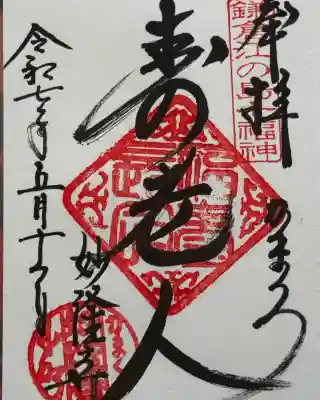 奉拝
鎌倉江の島七福神
かまくら
寿老人
妙隆寺
令和七年五月十八日